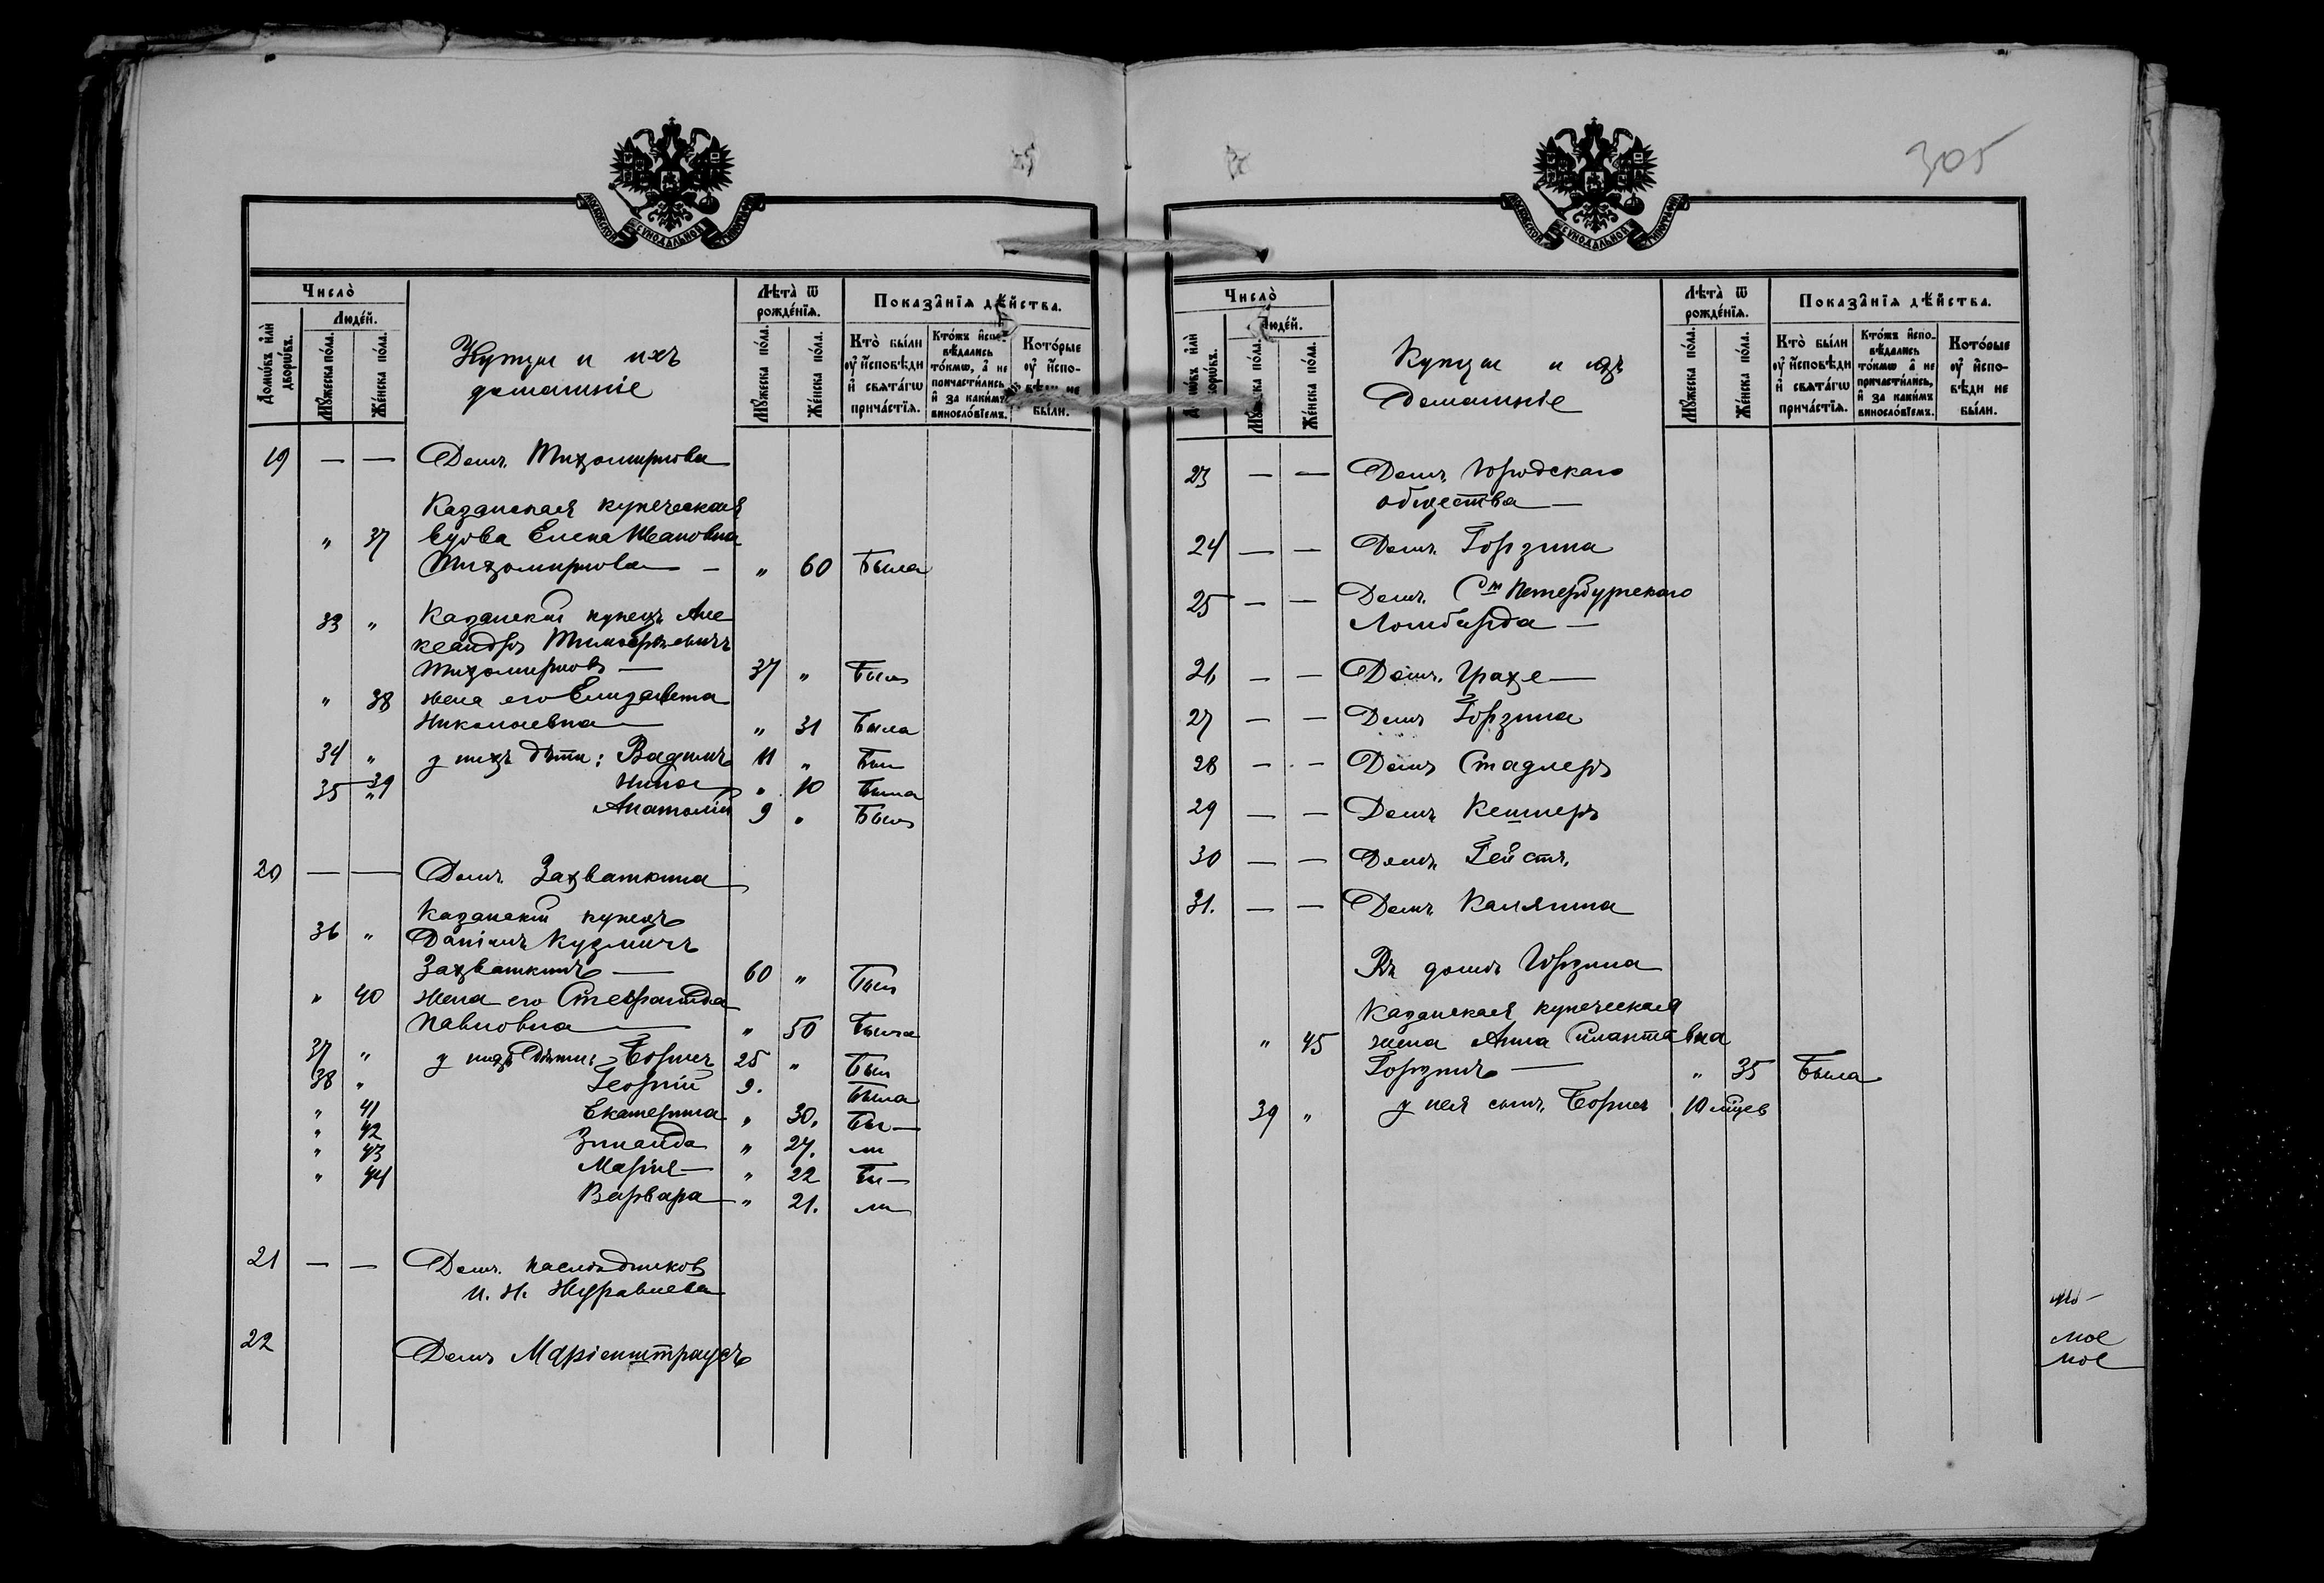 305
МОСКОВСКОЙ СѴНОДАЛЬНОЙ ТИПОГРАФІИ
Число̀
Домѡвъ и҆лѝ дворѡвъ.
Люде́й.
Мꙋ́жеска по́ла.
Же́нска по́ла.
Купцы и ихъ
домашніе
Лѣта̀ ѿ рожде́нїѧ.
Мꙋ́жеска по́ла.
Же́нска по́ла.
Показа̑нїѧ дѣ́йства.
Кто̀ бы́ли ᲂу҆ и҆́сповѣди и҆ свѧта́гѡ прича́стїѧ.
Кто́жъ и҆сповѣ́дались то́кмѡ, а҆ не причасти́лись, и҆ за каки́мъ виносло́вїемъ.
Кото́рые ᲂу҆ и҆́сповѣди не бы́ли.
19 — — Домъ Тихомирнова
Казанская купеческая
" 37 вдова Елена Ивановна
Тихомирнова — " 60 Была
33 " Казанскій купецъ Але
ксандръ Тимофѣевичъ
Тихомирновъ — 37 " Былъ
" 38 жена его Елизавета
Николаевна — " 31 Была
34 " у нихъ дѣти: Вадимъ 11 " Был
39 Нина " 10 Была
35 " Анатолій 9 " Былъ
20 — — Домъ Захваткина
Казанскій купецъ
36 " Даніилъ Кузмичъ
Захваткинъ — 60 " Былъ
" 40 жена его Стефанида
Павловна — " 50 Была
37 " у нихъ дѣти: Борисъ 25 " Был
38 " Георгій 9. Была
" 41 Екатерина " 30. Бы—
" 42 Зинаида " 27.
" 43 Марія — " 22 Бы—
" 44 Варвара — " 21.
21 — — Домъ наслѣдниковъ
И. Н. Журавлева
22 Домъ Маріенштраусъ
МОСКОВСКОЙ СѴНОДАЛЬНОЙ ТИПОГРАФІИ
Число̀
Домѡвъ и҆лѝ дворѡвъ.
Люде́й.
Мꙋ́жеска по́ла.
Же́нска по́ла.
Купцы и ихъ
Домашніе
Лѣта̀ ѿ рожде́нїѧ.
Мꙋ́жеска по́ла.
Же́нска по́ла.
Показа̑нїѧ дѣ́йства.
Кто̀ бы́ли ᲂу҆ и҆́сповѣди и҆ свѧта́гѡ прича́стїѧ.
Кто́жъ и҆сповѣ́дались то́кмѡ, а҆ не причасти́лись, и҆ за каки́мъ виносло́вїемъ.
Кото́рые ᲂу҆ и҆́сповѣди не бы́ли.
23 — — Домъ Городского
общества —
24 — — Домъ Горзина
25 — — Домъ Ст Петербургского
Ломбарда —
26 — — Домъ Грахе —
27 — — Домъ Горзина
28 — — Домъ Стадлеръ
29 — — Домъ Кешнеръ
30 — — Домъ Гейстъ
31. — — Домъ Калягина
Въ домѣ Горзина
Казанская купеческая
" 45 жена Анна Силантавна
Горзинъ — " 35 Была
39 " у нея сынъ Борисъ 10 мѣцев